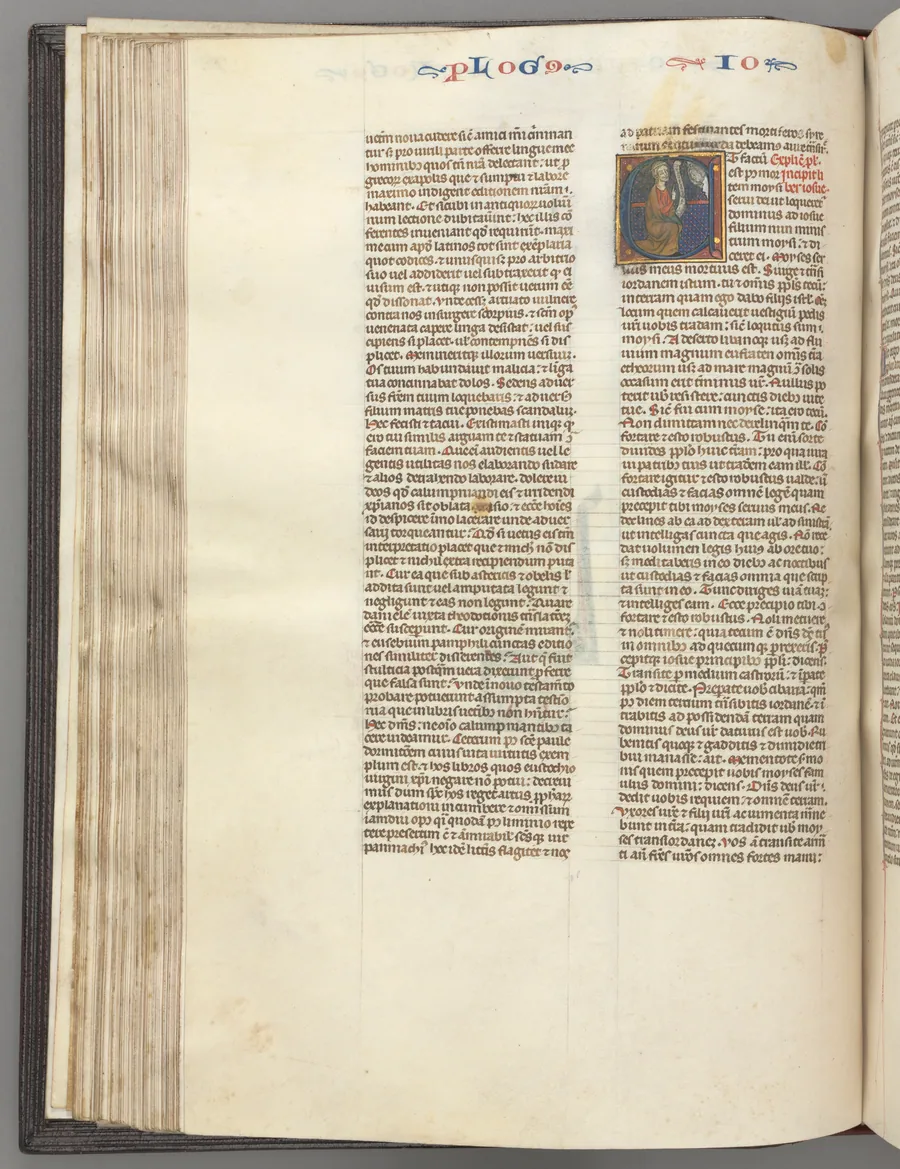 PLOG9 IO
uetm noua cudere sic̄ amici mī criminan
tur si pro uirili parte offerre lingue mee
hominibꝯ quos tn̄ mā delectant: ut p
maximo indigent editionem nr̄am ·
habeant. Et sicubi in antiquor uolūi
num lectione dubitauint: hec illis cō
ferentes inueniant qd requirūt. maxi
me cum apd latinos tot sint exēplaria
quot codices. ⁊ unusquisꝫ pro arbitrio
suo uel addiderit uel subtraxerit qͥ ei
uisum est. ⁊ utiqꝫ non possit uerum eē
qd dissonat. Vnde cess; arcuato uulnere
contra nos insurgere scorpius. ⁊ scm̄ op
uenenata capere linga desistat: uel sus
cipiens si placet. ul contempnēs si dis
plicet. Memineritqꝫ illorum uersuū.
Os tuum habundauit malicia: ⁊ līga
tua concinnabat dolos. Sedens aduer
sus frēm tuum loquebaris: ⁊ aduersꝰ
filium matris tue ponebas scandalū.
Hec fecisti ⁊ tacui. Existimasti inique qͥ
ero tui similis arguam te ⁊ statuam ɔ̄
faciem tuam. Que eī audientis uel le
gentis utilitas nos elaborando sudare
⁊ alios detrahendo laborare. dolere iu
deos qd calumpniandi eis ⁊ irridendi
xp̄ianos sit oblata occasio: ⁊ ecce hoīes
id despicere ūno lacerare unde aduer
sarij torqueantur. Qd si uetus eis tm̄
interpretatio placet que ⁊ mich̄ nō dis
plicet ⁊ nichil extra recipiendum puta
nt. Cur ea que sub astericis ⁊ obelis ł
addita sunt uel amputata legunt ⁊
negligunt ⁊ eas non legunt. Quare
danielē iuxta theodotionis trāslatōez
ecce susceperunt. Cur origine mirant̄
⁊ eusebium pamphili cunctas editio
nes similiter disserentes. Aut qͥ fuit
stulticia postqm̄ uera dixerint pferre
que falsa sunt. Vnde in nouo testamto
probare potuerunt assumpta testio
nia que in libris uetibꝯ non hn̄tur:
Hec dm̄s: ne oīo calumpniantibꝯ ta
cere uideamur. Ceterum pꝰ scē paule
dormitōem cuius uita uirtutis exem
plum est. ⁊ hos libros quos eustochio
uirgini xp̄i negare nō potui: decreui
mus dum spc̄ hos reget artus pphar
explanationi incumbere ⁊ omissum
iamdiu opꝰ qͥ quodā pꝰ liminio repe
pamachiꝰ hec idē littis flagitet ⁊ nos
ad patriam festinantes mortiferos syre
narum cantus surda debeamꝰ aure trāsire.
Et factū Explic̄ pl.
est pꝰ mor Incipit li
tem moysi ber iosue.
serui dm̄i ut loqueret
dominus ad iosue
filium nun minis
trum moysi: ⁊ di
ceret ei. Moyses ser
uus meus mortuus est. Surge ⁊ trāsi
iordanem istum. tu ⁊ omīs ppl̄s tecū:
in terram quam ego dabo filijs isrl̄. Oēm
locum quem calcauerit uestigiū pedis
urī uobis tradam: sic̄ locutus sum ·
moysi. A deserto libanoqꝫ usqꝫ ad flu
uium magnum eufraten omīs trā
etheorum usqꝫ ad mare magnū ɔ̄ solis
occasum erit tminus ur̄. Nullus po
terit uob̄ resistere: cunctis diebꝯ uite
tue. Sic̄ fui cum moyse: ita ero tecū.
Non dimittam nec derelinqm̄ te. Cō
fortare ⁊ esto robustus. Tu eni sorte
diuides pplo huic tram: pro qua iura
ui patribꝯ tuis ut traderem eam ill̄. Cō
fortare igitur ⁊ esto robustus ualde: ut
custodias ⁊ facias omnē legē quam
precepit tibi moyses seruus meus. Ne
declines ab ea ad dexteram ul̄ ad sinistrā:
ut intelligas cuncta que agis. Nō rece
dat uolumen legis huiꝰ ab ore tuo:
sꝫ meditaberis in eo diebꝯ ac noctibus
ut custodias ⁊ facias omnia que scrip
ta sunt in eo. Tunc diriges uiā tuā:
⁊ intelliges eam. Ecce precipio tibi ɔ̄
fortare ⁊ esto robustus. Noli metuere
⁊ noli timere: quia tecum ē dn̄s ds̄ tuꝰ
in omnibꝯ ad quecumqꝫ prexeris. P̄
cepitqꝫ iosue principibꝯ ppl̄i: dicens.
Transite p medium castrorū: ⁊ īpate
pplo ⁊ dicite. Preparate uob̄ cibaria: qm̄
pꝰ diem tercium trāsibitis iordanē: ⁊ ī
trabitis ad possidendā terram quam
dominus deus ur̄ daturus est uob̄. Ru
benitis quoqꝫ ⁊ gadditis ⁊ dimidie tri
bui manasse: ait. Mementote smo
nis quem precepit uobis moyses fam
ulus domini: dicens. Dn̄s deus ur̄ ·
dedit uobis requiem: ⁊ omnē terram.
Vxores ure ⁊ filii urī ac iumenta mane
bunt in trā: quam tradidit uob̄ moy
ses trans iordanez. Vos ā transite arm
ti an̄ frēs uros omnes fortes manu: